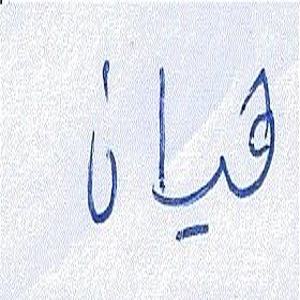 هيان